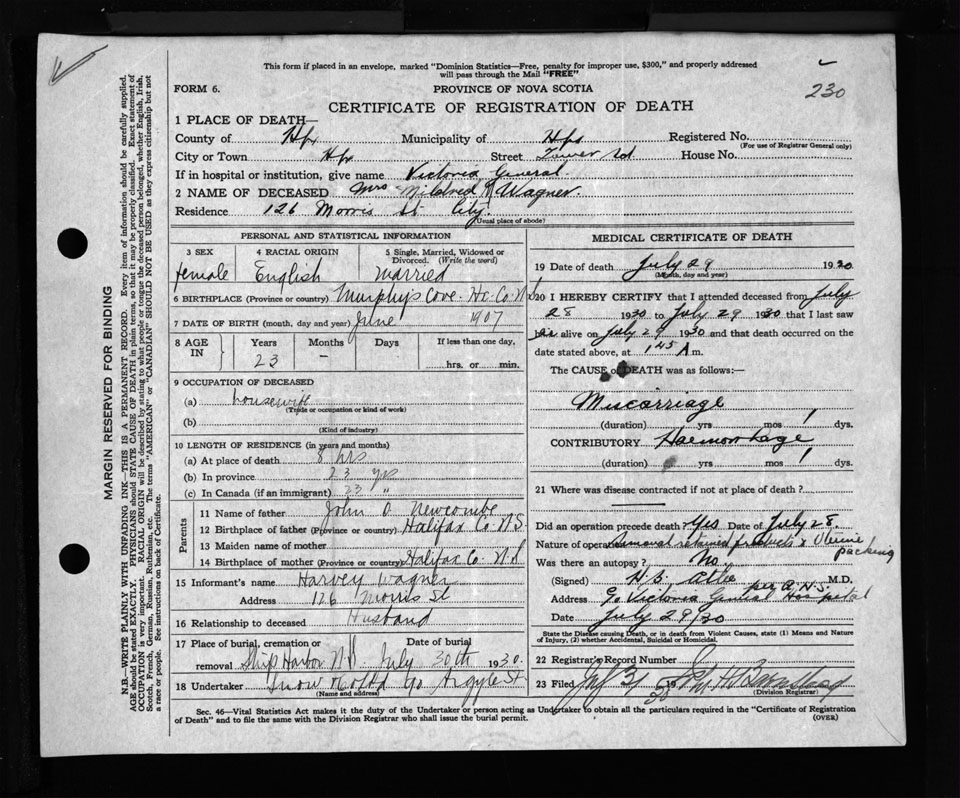 This form if placed in an envelope, marked "Dominion Statistics—Free, penalty for improper use, $300," and properly addressed
will pass through the Mail "FREE"
FORM 6.
PROVINCE OF NOVA SCOTIA
230
CERTIFICATE OF REGISTRATION OF DEATH
1 PLACE OF DEATH—
County of Hfx Municipality of Hfx Registered No.
(For use of Registrar General only)
City or Town Hfx Street Tower Rd House No.
If in hospital or institution, give name Victoria General
2 NAME OF DECEASED Mrs Mildred Wagner
Residence 126 Morris St City
(Usual place of abode)
PERSONAL AND STATISTICAL INFORMATION
3 SEX 4 RACIAL ORIGIN 5 Single, Married, Widowed or Divorced. (Write the word)
female English Married
6 BIRTHPLACE (Province or country) Murphy's Cove. Hx. Co. N.S
7 DATE OF BIRTH (month, day and year) June 1907
8 AGE IN Years Months Days If less than one day,
23 – hrs. or min.
9 OCCUPATION OF DECEASED
(a) housewife
(Trade or occupation or kind of work)
(b)
(Kind of industry)
10 LENGTH OF RESIDENCE (in years and months)
(a) At place of death 8 hrs
(b) In province 23 yrs
(c) In Canada (if an immigrant) 23 "
Parents
11 Name of father John O Newcombe
12 Birthplace of father (Province or country) Halifax Co N.S.
13 Maiden name of mother
14 Birthplace of mother (Province or country) Halifax Co. N.S
15 Informant's name Harvey Wagner
Address 126 Morris St
16 Relationship to deceased Husband
17 Place of burial, cremation or removal Ship Harbor N.S. Date of burial July 30th 1930.
18 Undertaker Snow & Co Ltd Argyle St
(Name and address)
MEDICAL CERTIFICATE OF DEATH
19 Date of death July 29 1930
(Month, day and year)
20 I HEREBY CERTIFY that I attended deceased from July
28 1930 to July 29 1930 that I last saw
alive on July 29 1930 and that death occurred on
date stated above, at 1 45 A m.
The CAUSE of DEATH was as follows:—
Miscarriage
(duration) yrs mos 1 dys.
CONTRIBUTORY Haemorrhage
(duration) yrs mos 1 dys.
21 Where was disease contracted if not at place of death?
Did an operation precede death? Yes Date of July 28.
Nature of operation Removal retained products & Uterine packing
Was there an autopsy? No.
(Signed) H.B. Atlee per A.N.S. M.D.
Address % Victoria General Hospital
Date July 29/30
State the Disease causing Death, or in death from Violent Causes, state (1) Means and
Nature of Injury, (2) whether Accidental, Suicidal or Homicidal.
22 Registrar's Record Number
23 Filed July 31
(Division Registrar)
Sec. 46—Vital Statistics Act makes it the duty of the Undertaker or person acting as Undertaker to obtain all the particulars required in the "Certificate of Registration
of Death" and to file the same with the Division Registrar who shall issue the burial permit.
(OVER)
MARGIN RESERVED FOR BINDING
N.B.—WRITE PLAINLY WITH UNFADING INK—THIS IS A PERMANENT RECORD. Every item of information should be carefully supplied.
AGE should be stated EXACTLY. PHYSICIANS should STATE CAUSE OF DEATH in plain terms, so that it may be properly classified. Exact statement of
OCCUPATION is very important. RACIAL ORIGIN will be described by stating to what people or tongue the deceased person belonged, whether English, Irish,
Scotch, French, German, Russian, Ruthenian, etc. The terms "AMERICAN" or "CANADIAN" SHOULD NOT BE USED as they express citizenship but not
a race or people. See instructions on back of Certificate.